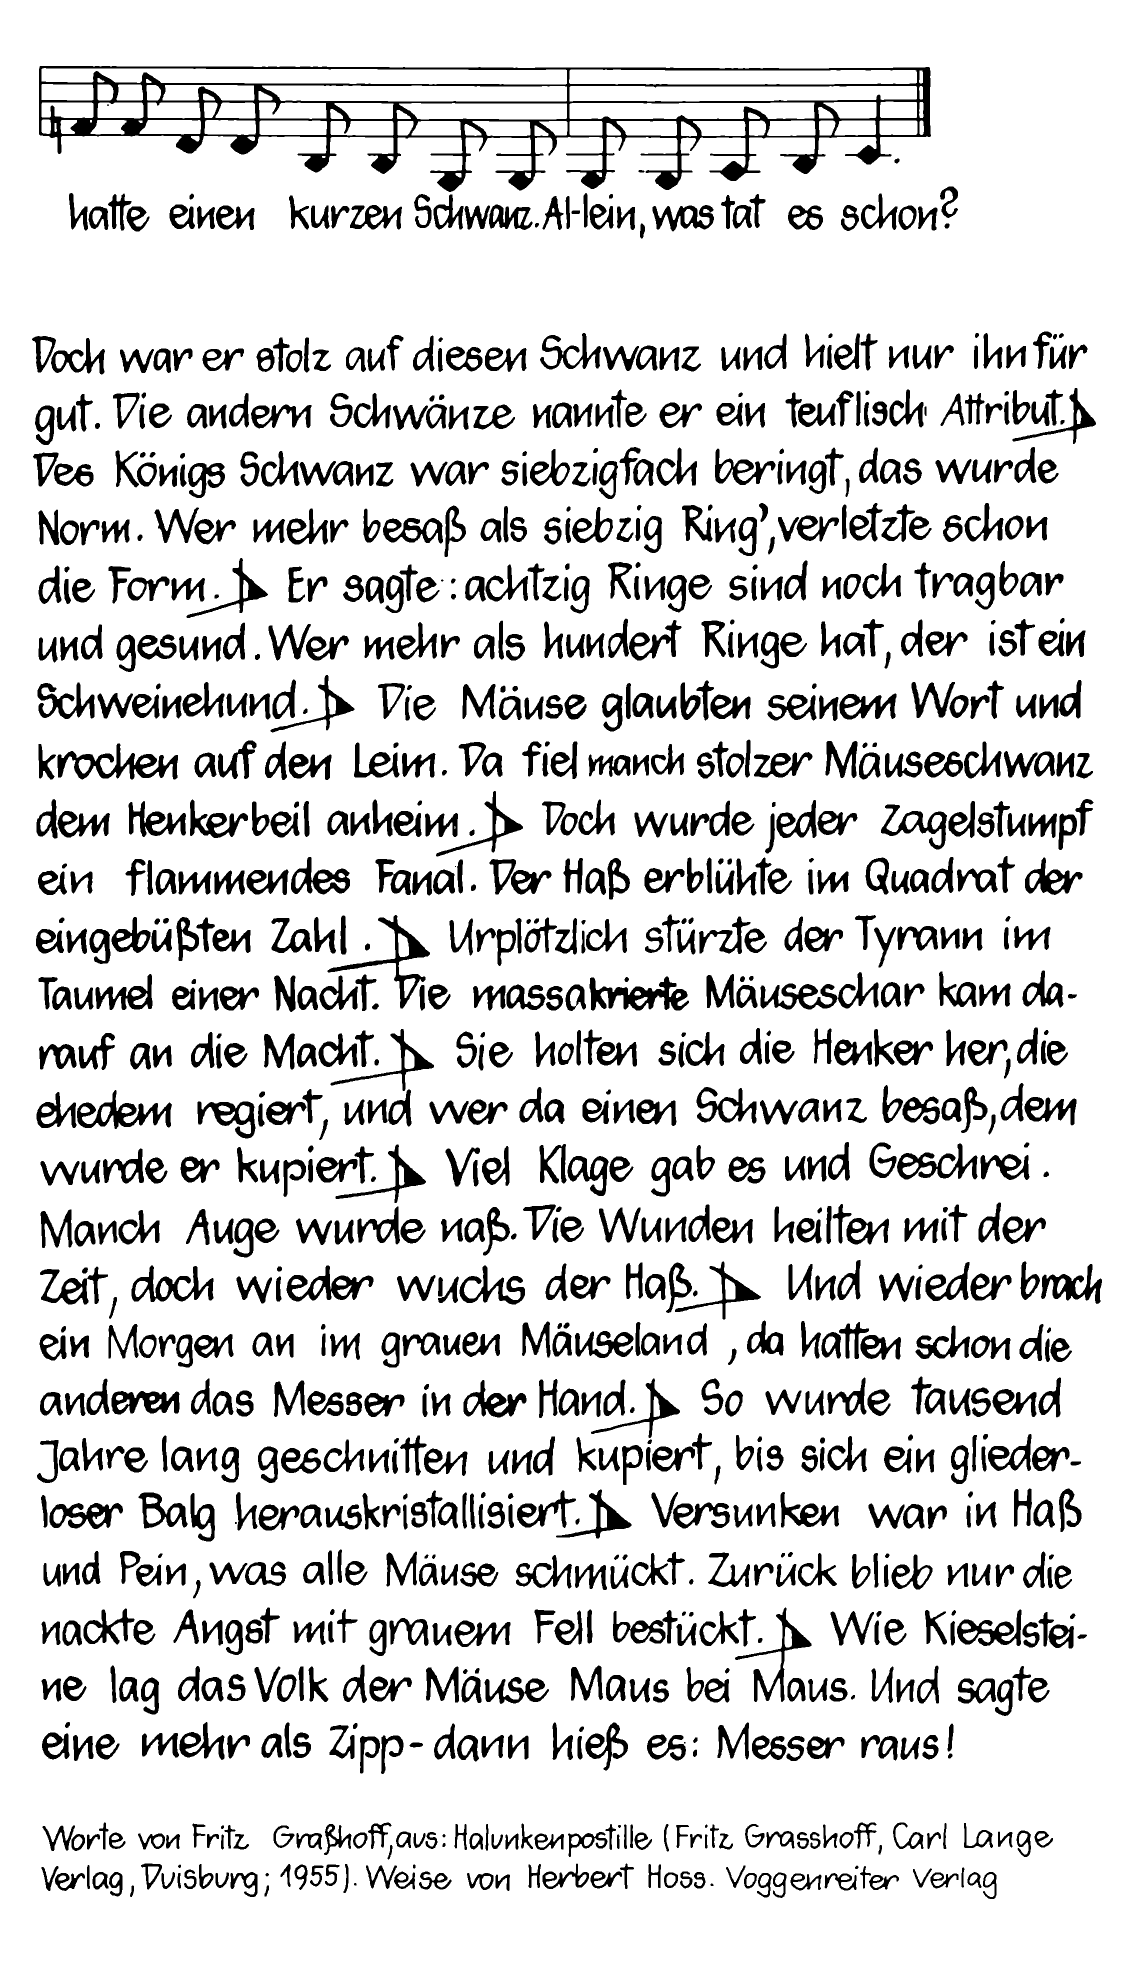 hatte einen kurzen Schwanz. Al-lein, was tat es schon?
Doch war er stolz auf diesen Schwanz und hielt nur ihn für
gut. Die andern Schwänze nannte er ein teuflisch Attribut.
Des Königs Schwanz war siebzigfach beringt, das wurde
Norm. Wer mehr besaß als siebzig Ring', verletzte schon
die Form. Er sagte: achtzig Ringe sind noch tragbar
und gesund. Wer mehr als hundert Ringe hat, der ist ein
Schweinehund. Die Mäuse glaubten seinem Wort und
krochen auf den Leim. Da fiel manch stolzer Mäuseschwanz
dem Henkerbeil anheim. Doch wurde jeder Zagelstumpf
ein flammendes Fanal. Der Haß erblühte im Quadrat der
eingebüßten Zahl. Urplötzlich stürzte der Tyrann im
Taumel einer Nacht. Die massakrierte Mäuseschar kam da-
rauf an die Macht. Sie holten sich die Henker her, die
ehedem regiert, und wer da einen Schwanz besaß, dem
wurde er kupiert. Viel Klage gab es und Geschrei.
Manch Auge wurde naß. Die Wunden heilten mit der
Zeit, doch wieder wuchs der Haß. Und wieder brach
ein Morgen an im grauen Mäuseland, da hatten schon die
anderen das Messer in der Hand. So wurde tausend
Jahre lang geschnitten und kupiert, bis sich ein glieder-
loser Balg herauskristallisiert. Versunken war in Haß
und Pein, was alle Mäuse schmückt. Zurück blieb nur die
nackte Angst mit grauem Fell bestückt. Wie Kieselstei-
ne lag das Volk der Mäuse Maus bei Maus. Und sagte
eine mehr als Zipp - dann hieß es: Messer raus!
Worte von Fritz Graßhoff, aus: Halunkenpostille (Fritz Grasshoff, Carl Lange
Verlag, Duisburg; 1955). Weise von Herbert Hoss. Voggenreiter Verlag